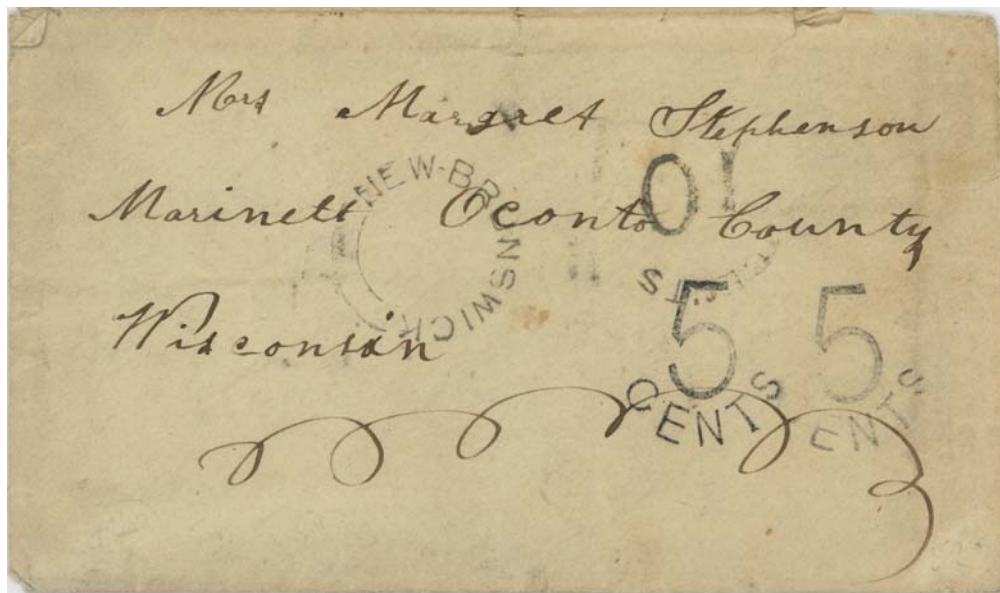 Mrs Margret Stephenson
Marinett Oconto County
Wisconsin
NEW-BRUNSWICK
10
5
CENTS
5
CENTS